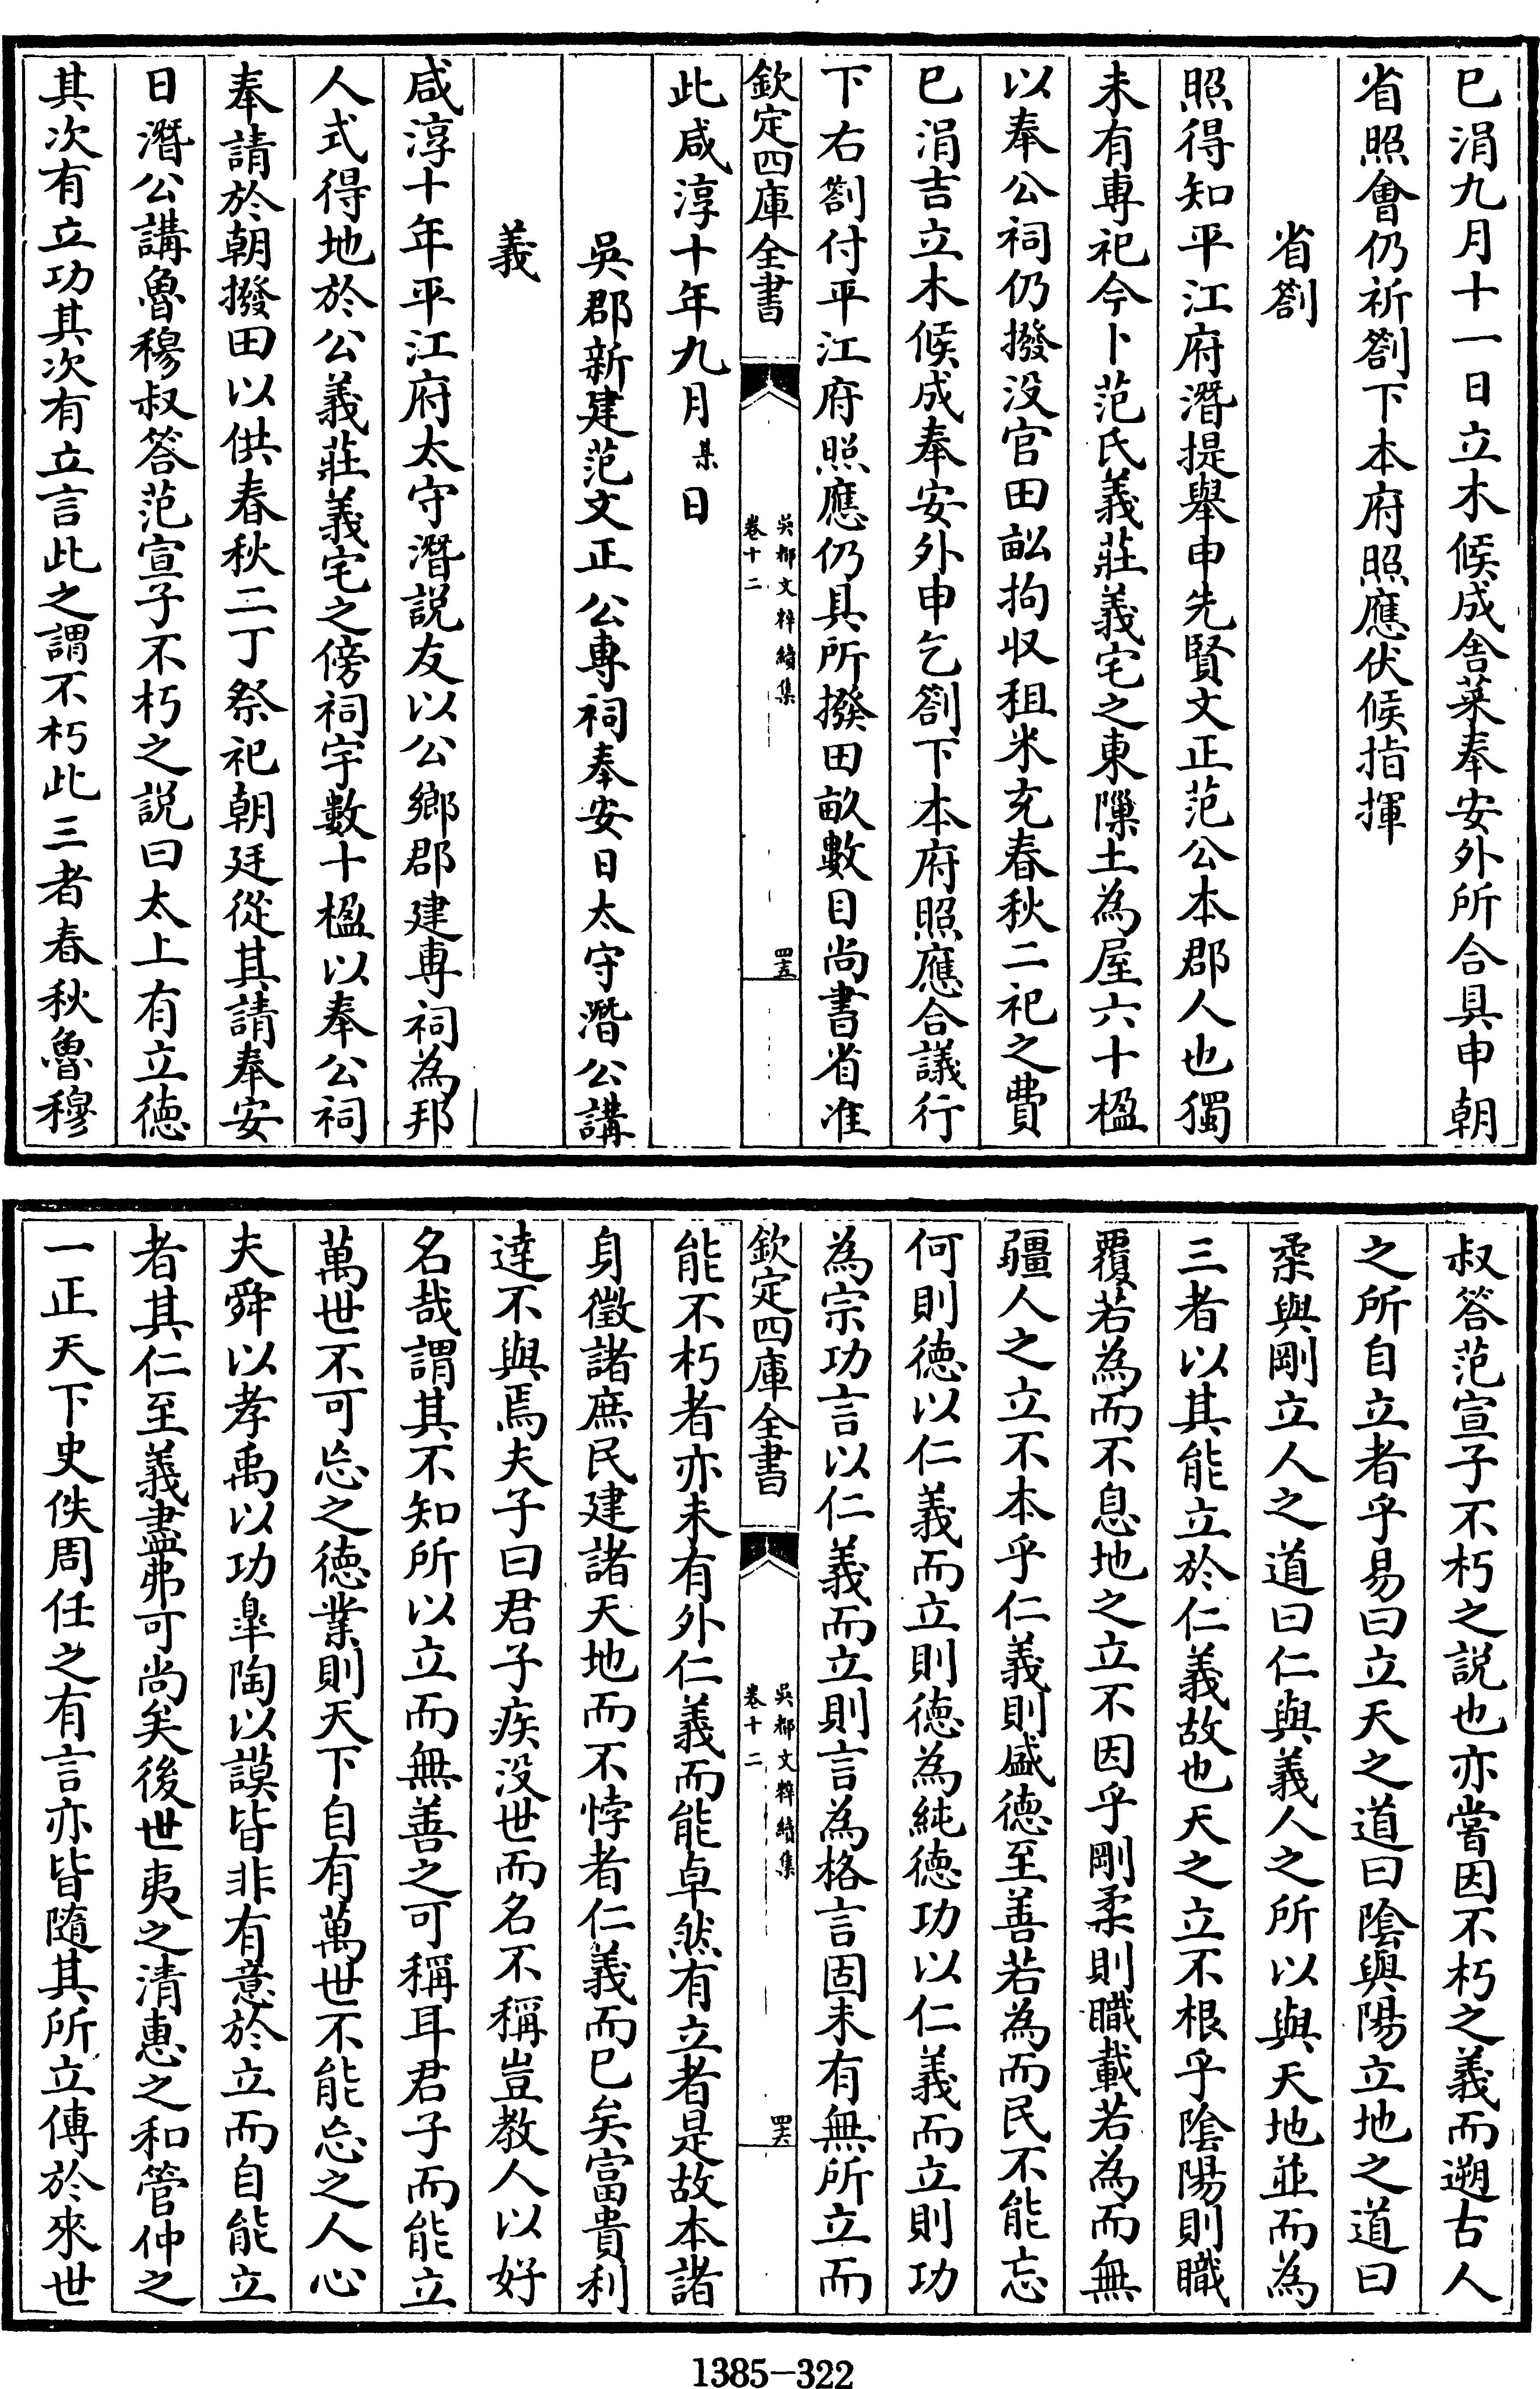 已涓九月十一日立木候成舎菜奉安外所合具申朝
省照會仍祈劄下本府照應伏候指揮
省劄
照得知平江府潛提舉申先賢文正范公本郡人也獨
未有專祀今卜范氏義莊義宅之東隟土為屋六十楹
以奉公祠仍撥没官田畆拘收租米充春秋二祀之費
已涓吉立木候成奉安外申乞劄下本府照應合議行
下右劄付平江府照應仍具所撥田畝數目尚書省准
欽定四庫全書
吳都文粹續集
卷十二
四五
此咸淳十年九月某日
吳郡新建范文正公專祠奉安日太守潛公講
義
咸淳十年平江府太守潛説友以公鄉郡建專祠為邦
人式得地於公義莊義宅之傍祠宇數十楹以奉公祠
奉請於朝撥田以供春秋二丁祭祀朝廷從其請奉安
日潛公講魯穆叔答范宣子不朽之説曰太上有立徳
其次有立功其次有立言此之謂不朽此三者春秋魯穆
叔答范宣子不朽之説也亦嘗因不朽之義而遡古人
之所自立者乎易曰立天之道曰陰與陽立地之道曰
柔與剛立人之道曰仁與義人之所以與天地並而為
三者以其能立於仁義故也天之立不根乎陰陽則職
覆若為而不息地之立不因乎剛柔則職載若為而無
疆人之立不本乎仁義則盛徳至善若為而民不能忘
何則徳以仁義而立則徳為純徳功以仁義而立則功
為宗功言以仁義而立則言為格言固未有無所立而
欽定四庫全書
吳都文粹續集
卷十二
四六
能不朽者亦未有外仁義而能卓然有立者是故本諸
身徴諸庶民建諸天地而不悖者仁義而已矣富貴利
達不與焉夫子曰君子疾没世而名不稱豈教人以好
名哉謂其不知所以立而無善之可稱耳君子而能立
萬世不可忘之徳業則天下自有萬世不能忘之人心
夫舜以孝禹以功臯陶以謨皆非有意於立而自能立
者其仁至義盡弗可尚矣後世夷之清惠之和管仲之
一正天下史佚周任之有言亦皆隨其所立傳於來世
1385-322